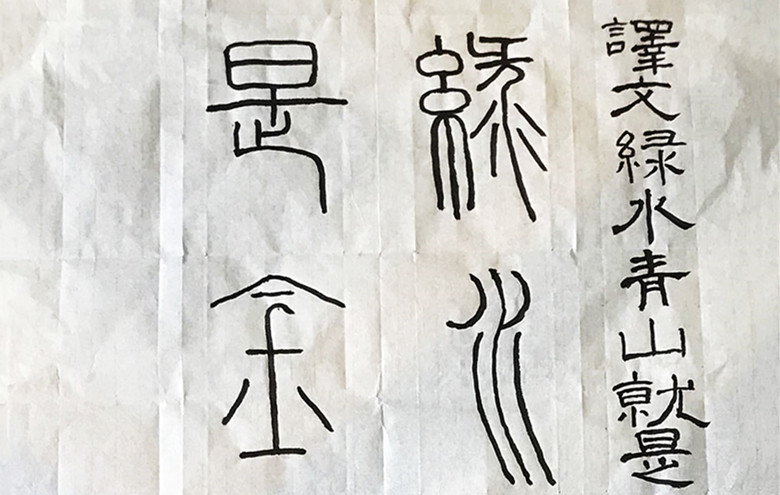 譯文緑水青山就是
緑水
是金